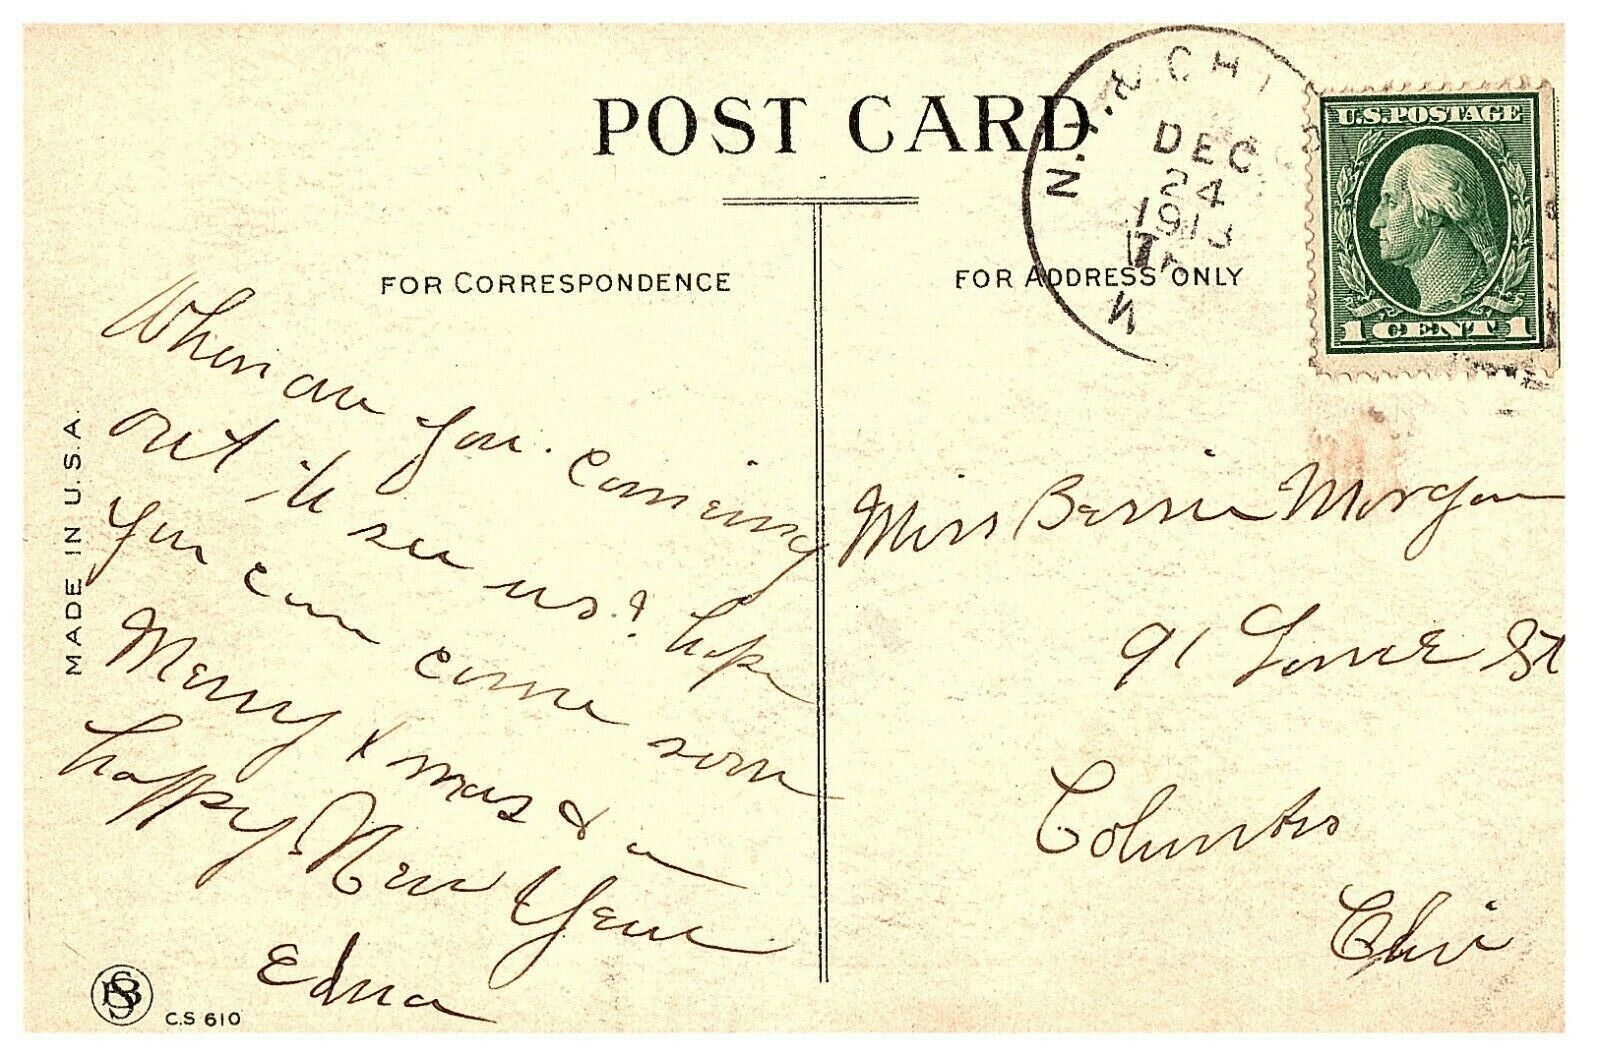 POST CARD
FOR CORRESPONDENCE
When are you coming
out to see us? hope
you can come soon
Merry Xmas & a
happy New Year
Edna
MADE IN U.S.A.
C.S 610
N. CHI
DEC
24
1913
U.S. POSTAGE
1 CENT 1
FOR ADDRESS ONLY
Miss Bessie Morgan
91 St
Columbus
Ohio